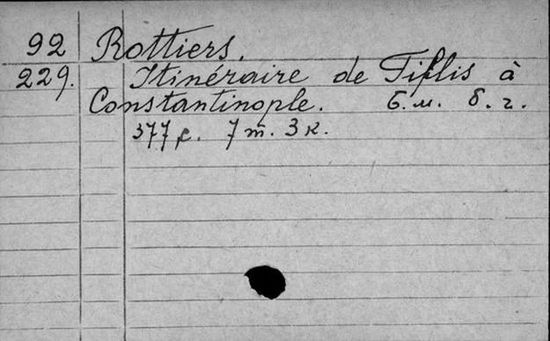 92 Rottiers.
229. Itinéraire de Tiflis à
Constantinople. б. м. б. г.
377 с. 7 т. 3 к.